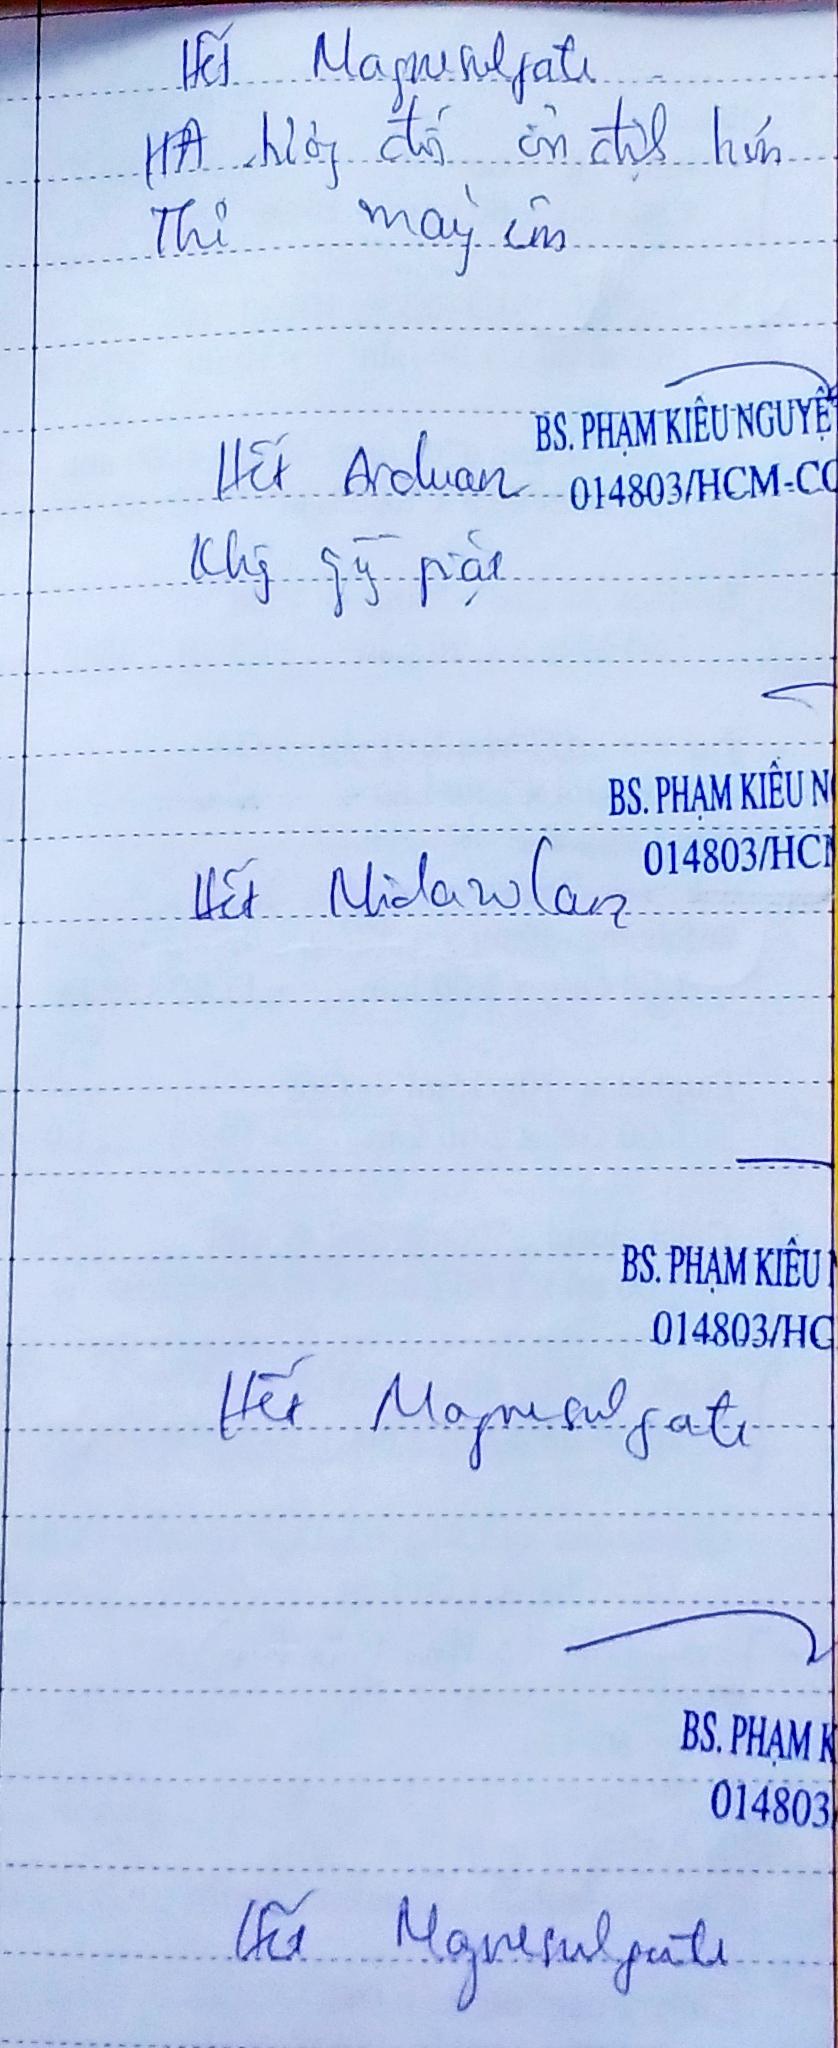 Hết Magnesulfate
HA tương đối ổn định hơn
Thở máy êm
BS. PHẠM KIỀU NGUYỆT
Hết Arduan 014803/HCM-CC
Không gồng giật
BS. PHẠM KIỀU N
014803/HCM
Hết Midazolam
BS. PHẠM KIỀU N
014803/HC
Hết Magnesulfate
BS. PHẠM K
014803/
Hết Magnesulfate